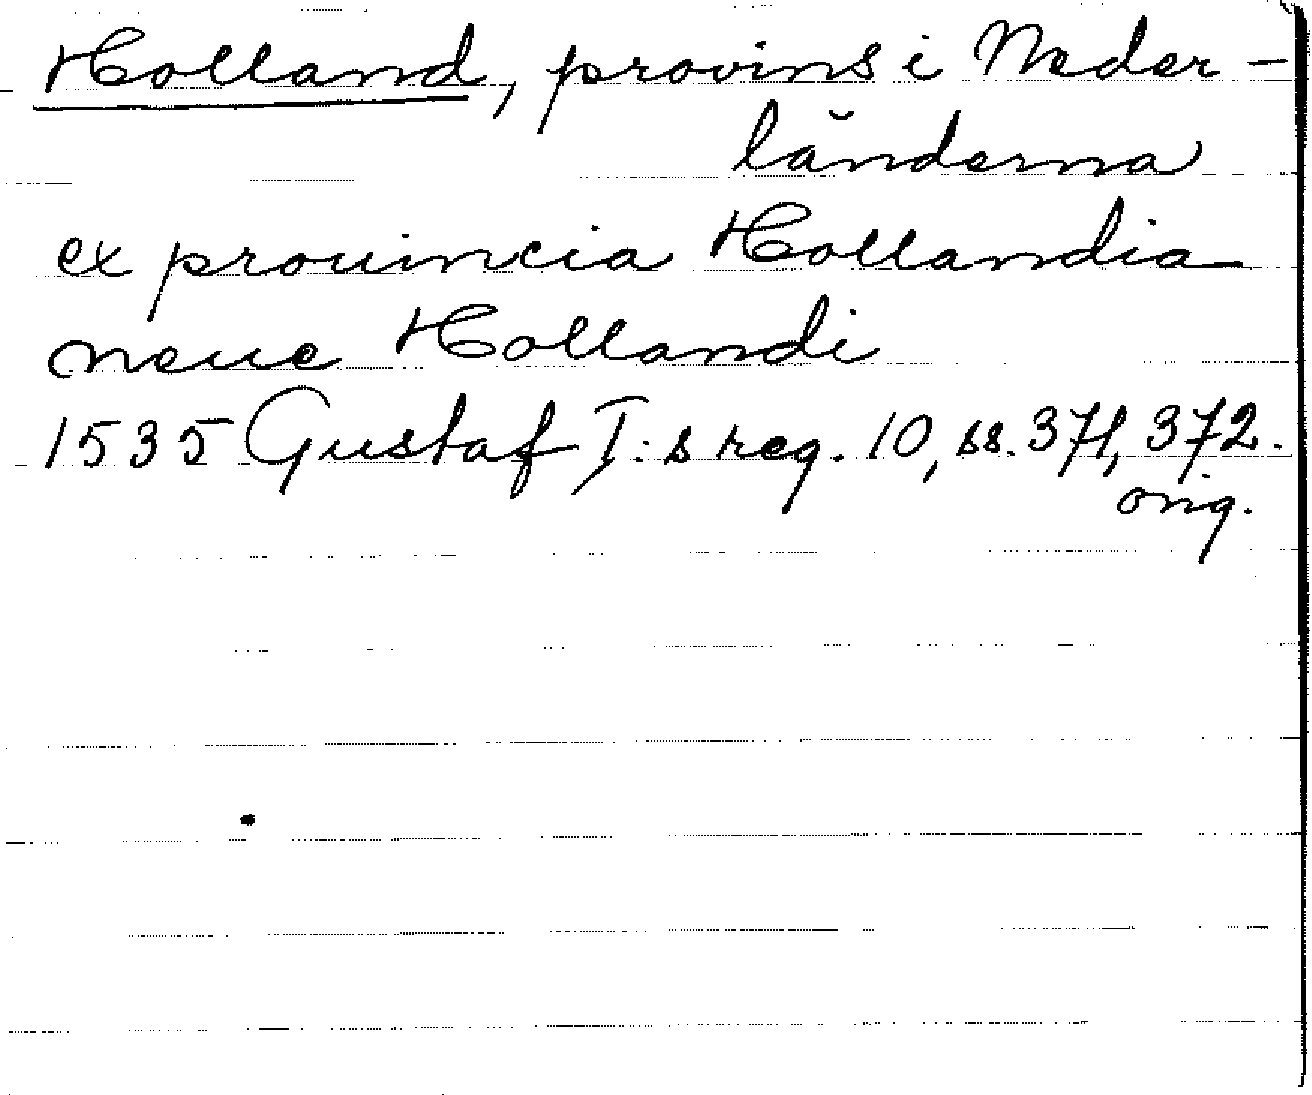 Holland, provins i Neder-
länderna
ex prouincia Hollandia
neue Hollandi
1535 Gustaf I:s reg. 10, ss. 371, 372.
orig.